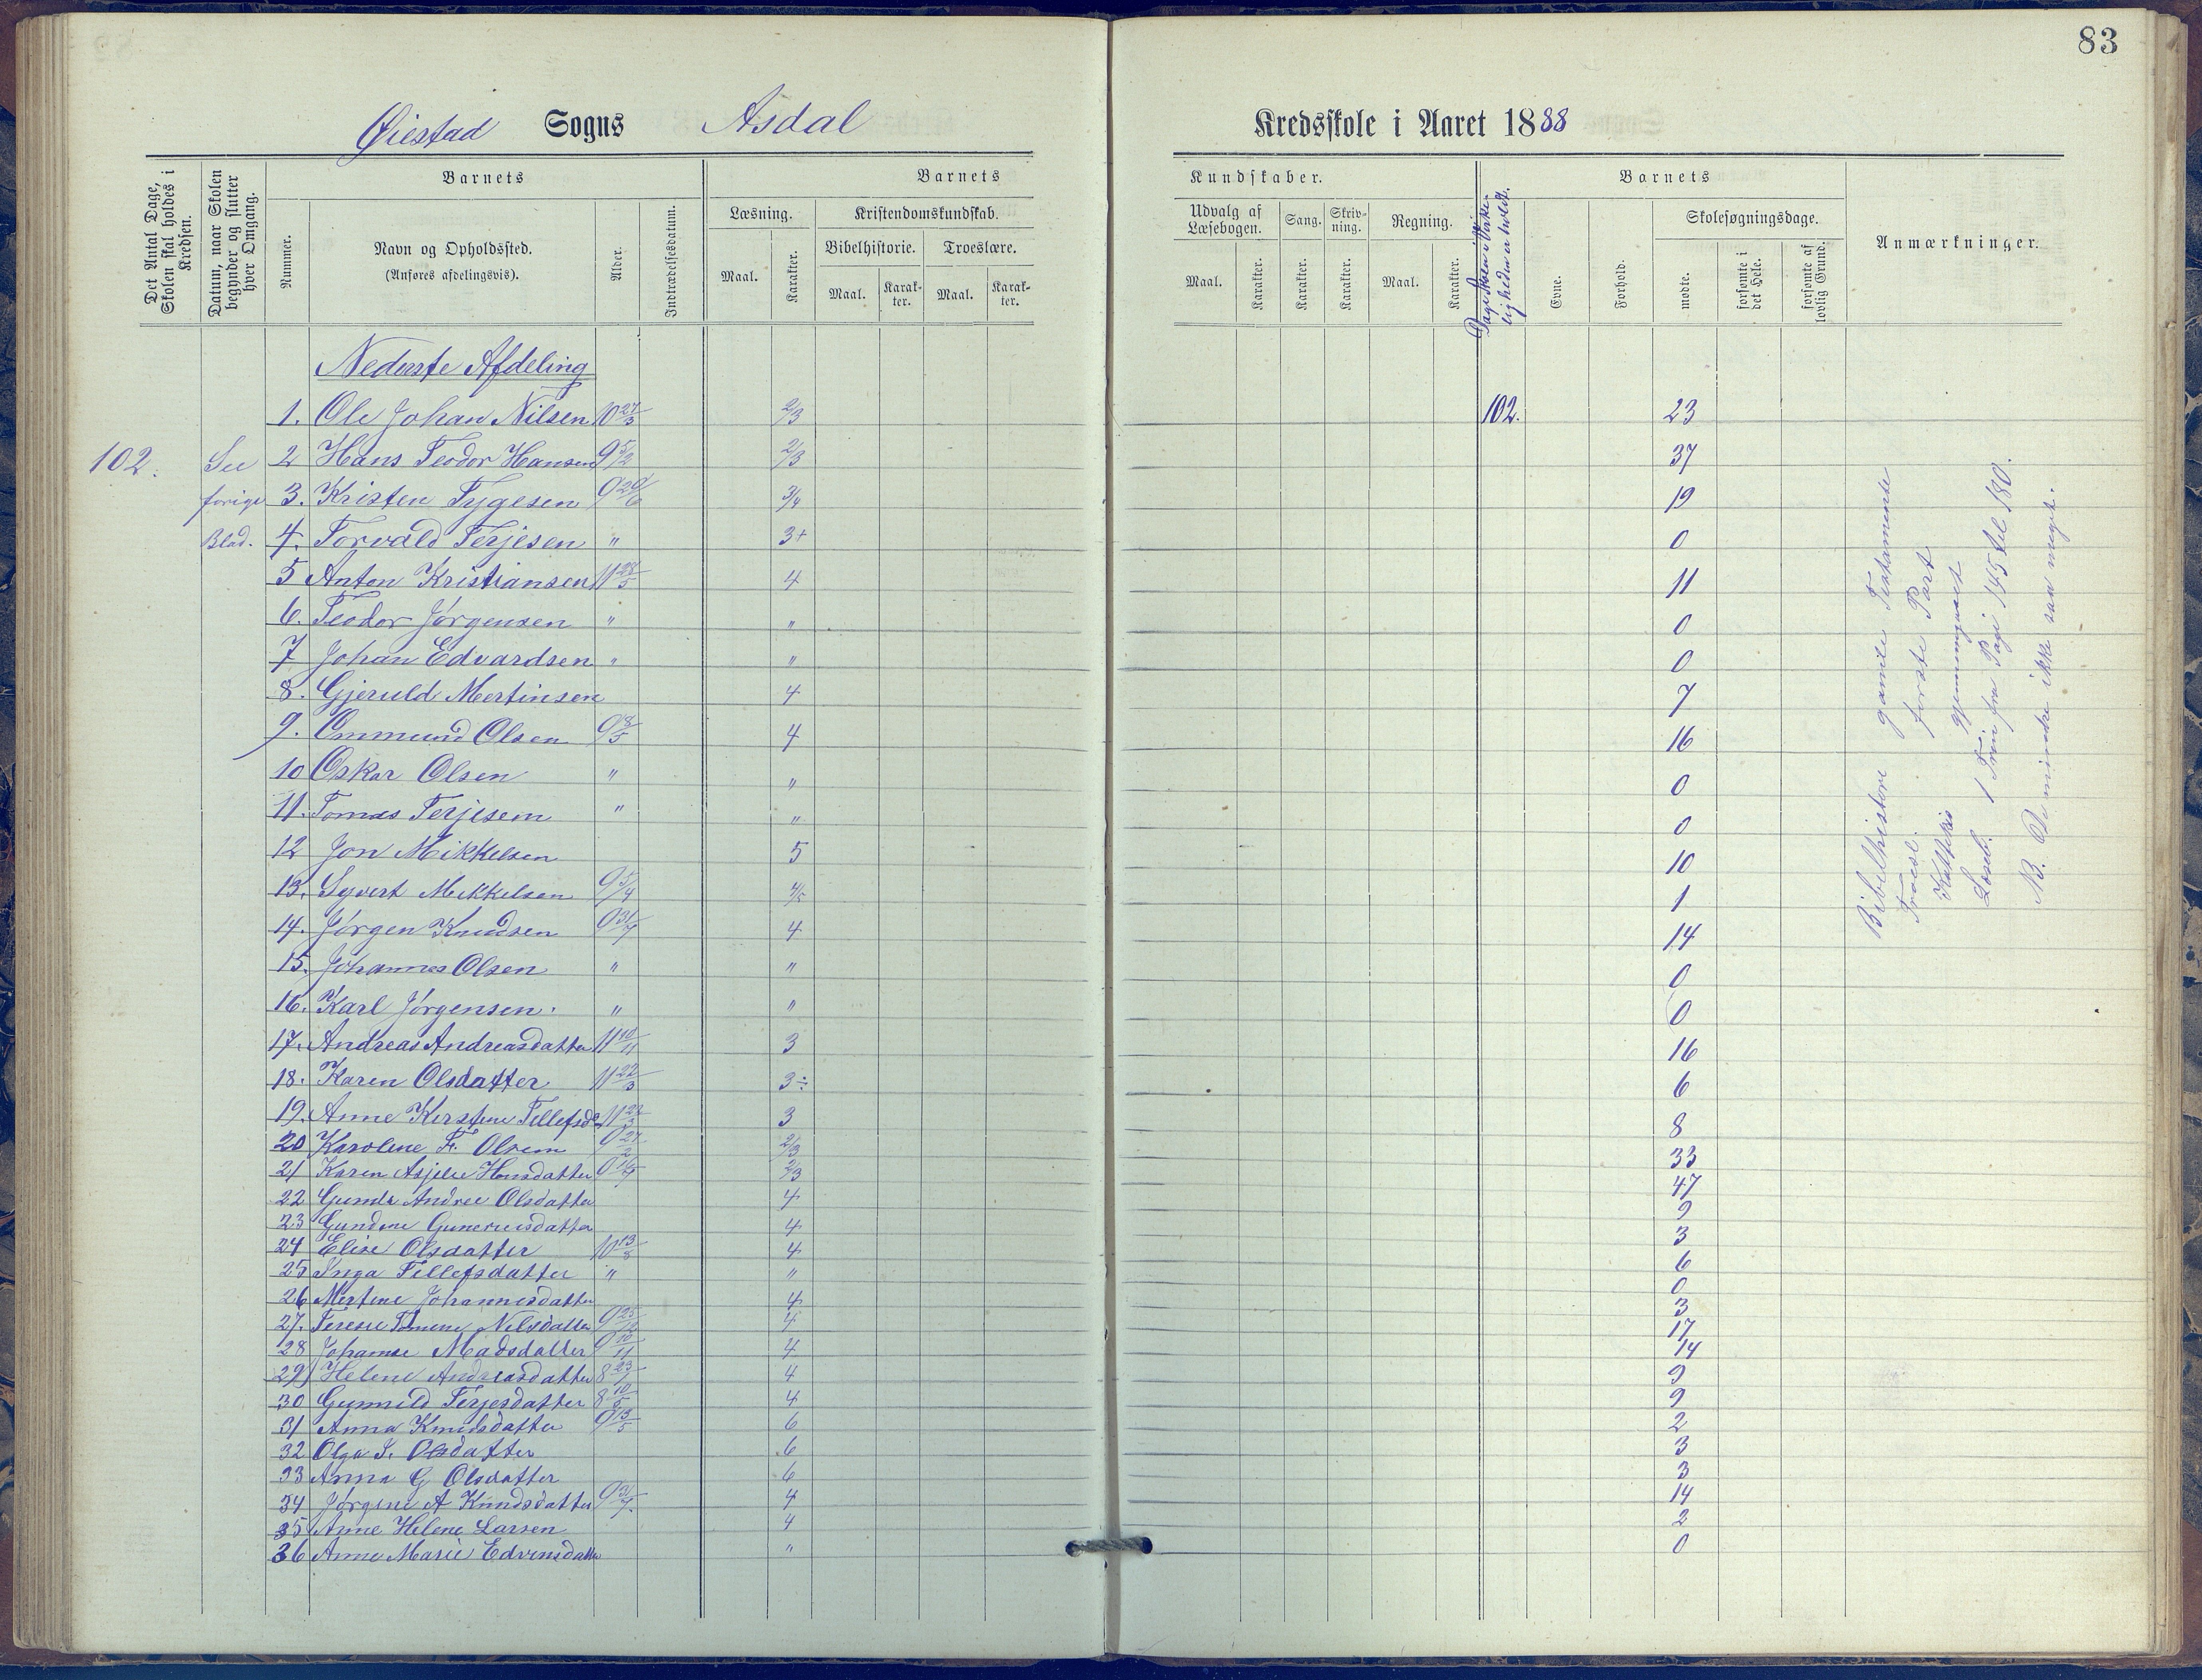 83
Øiestad Sogns Asdal Kredsskole i Aaret 1888
Det Antal Dage, Skolen skal holdes i Kredsen.
Datum, naar Skolen begynder og slutter hver Omgang.
Barnets
Nummer.
Navn og Opholdssted.
(Anføres afdelingsvis).
Alder.
Indtrædelsesdatum.
Barnets
Læsning.
Maal.
Karakter.
Kristendomskundskab.
Bibelhistorie.
Maal.
Karakter.
Troeslære.
Maal.
Karakter.
Kundskaber.
Udvalg af Læsebogen.
Maal.
Karakter.
Sang.
Karakter.
Skrivning.
Karakter.
Regning.
Maal.
Karakter.
Dage Skolen i Virkeligheden er holdt.
Barnets
Evne.
Forhold.
Skolesøgningsdage.
mødte.
forsømte i det Hele.
forsømte af lovlig Grund.
Anmærkninger.
Nederste Afdeling
1. Ole Johan Nilsen 10 27/3 2/3 102. 23
102. See 2 Hans Teodor Hansen 9 5/2 2/3 37
forige 3. Kristen Tygesen 9 29/6 3/4 19
Blad. 4. Torvald Terjesen " 3+ 0
5 Anton Kristiansen 11 28/5 4 11
6. Teodor Jørgensen " " 0
7 Johan Edvardsen " " 0
8. Gjeruld Mertinsen 4 7
9. Ommund Olsen 9 8/5 4 16
10 Oskar Olsen " " 0
11. Tomas Terjesem " " 0
12 Jon Mikkelsen 5 10
13. Syvert Mikkelsen 9 5/4 4/5 1
14. Jørgen Knudsen 9 31/7 4 14
15. Johannes Olsen " " 0
16. Karl Jørgensen. " " 0
17. Andrea Andreasdatter 11 10/11 3 16
18. Karen Olsdatter 11 22/3 3÷ 6
19. Anne Kirstene Tellefsd 11 3 8
20 Karoline F. Olsem 9 27/2 2/3 33
21 Karen Asjelie Hansdatter 9 2/3 47
22 Gunda Andree Olsdatter 4 9
23 Gundine Guneriusdatter 4 3
24 Elise Olsdatter 10 13/8 4 6
25 Inga Tellefsdatter " " 0
26 Mertine Johannesdatter 4 3
27. Terese Tomene Nilsdatter 9 4 17
28 Johanne Madsdatter 9 10/11 4 14
29 Helene Andreasdatter 8 4 9
30 Gunnild Terjesdatter 8 10/5 4 9
31 Anna Knudsdatter 9 13/5 6 2
32 Olga S. Olsdatter 6 3
33 Anna G Olsdatter 6 3
34 Jørgine A Knudsdatter 9 31/7 4 14
35 Anne Helene Larsen 4 2
36 Anne Marie Edvensdatter " 0
Bibelhistorie gamle Testamente
Troesl. første Part
gjennemgaaet
Læseb. 1 Trin fra Page 145 til 180.
NB. De mindre ikke saa meget.